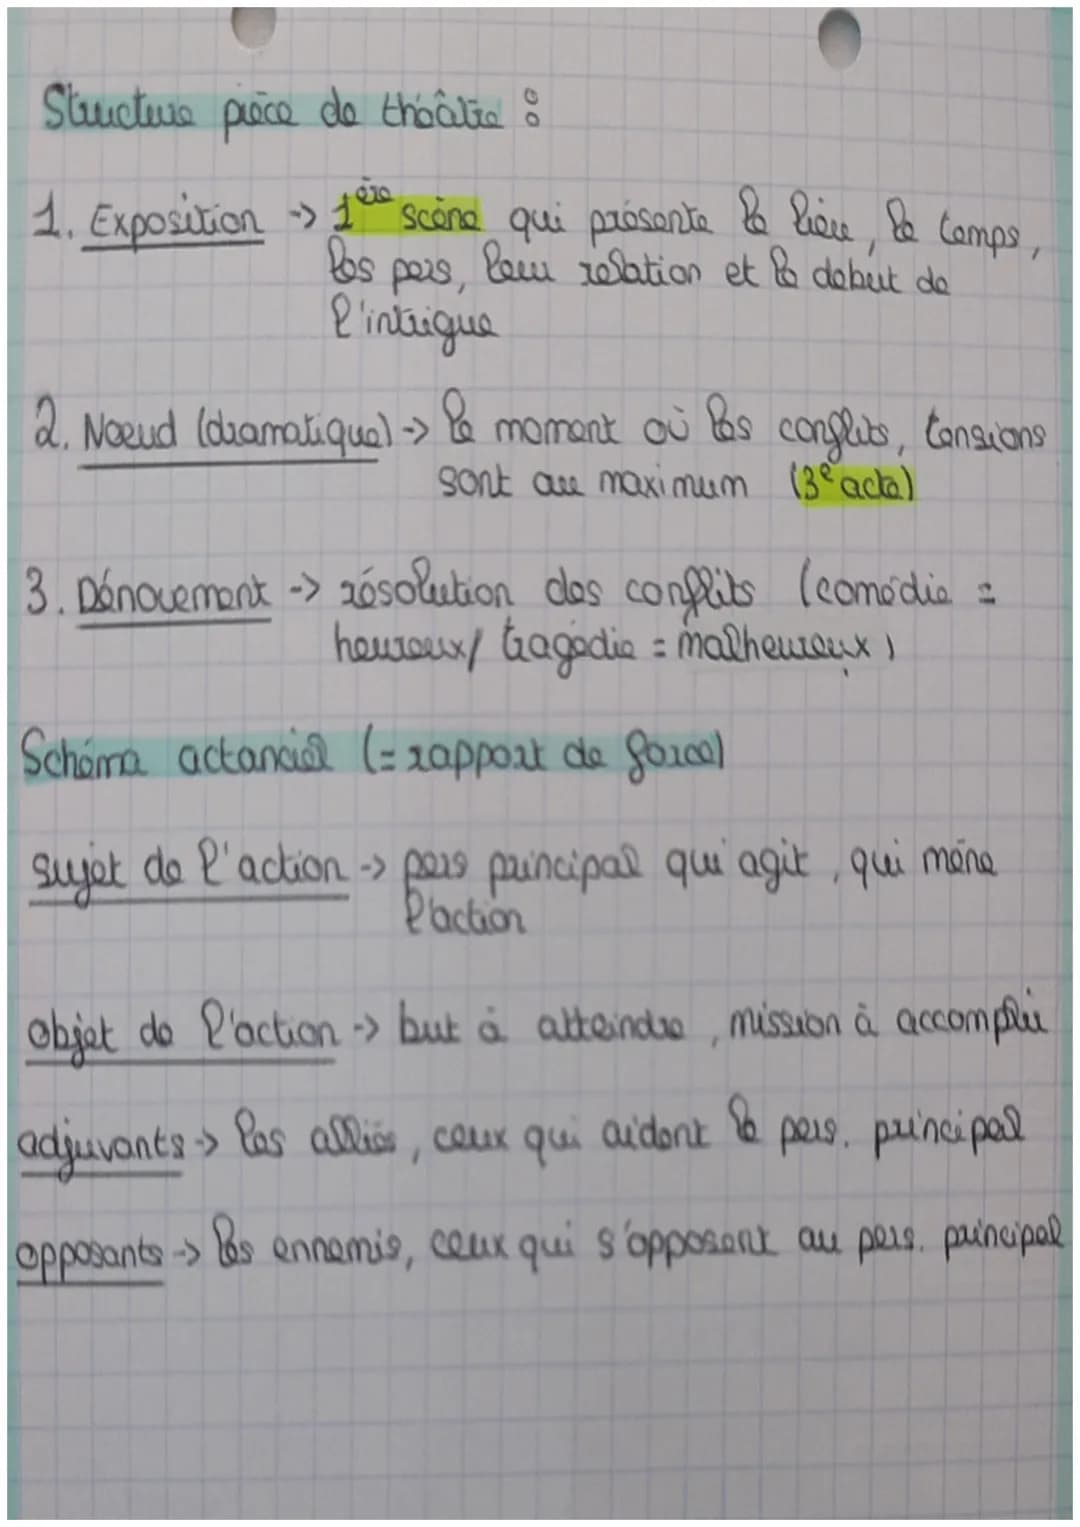 Structure pièce de théâtre :
1. Exposition -> 1ère scène qui présente le lieu, le temps,
les pers, leur relation et le debut de
l'intrigue
2. Noeud (dramatique) -> le moment où les conflits, tensions
sont au maximum (3e acte)
3. Dénouement -> résolution des conflits (comédie =
heureux/ tragédie = malheureux)
Schéma actanciel (= rapport de force)
sujet de l'action -> pers principal qui agit, qui mène
l'action
objet de l'action -> but à atteindre, mission à accomplir
adjuvants -> les alliés, ceux qui aident le pers. principal
opposants -> les ennemis, ceux qui s'opposent au pers. principal